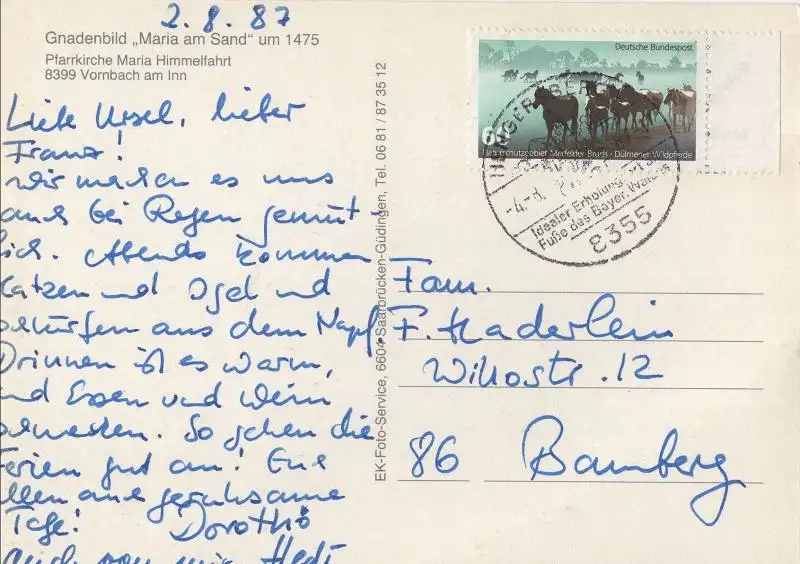 2.8.87
Gnadenbild „Maria am Sand" um 1475
Pfarrkirche Maria Himmelfahrt
8399 Vornbach am Inn
Liebe Ursel, lieber
Franz!
Wir machen es uns
auch bei Regen gemüt-
lich. Abends kommen
Katzen und Igel und
schlürfen aus dem Napf.
Drinnen ist es warm,
und Essen und Wein
schmecken. So gehen die
Ferien gut an! Euch
allen eine geruhsame
Tage! Dorothé
auch von mir Hedi
EK-Foto-Service, 6604 Saarbrücken-Güdingen, Tel. 06 81 / 87 35 12
Deutsche Bundespost
60
Naturschutzgebiet Merfelder Bruch · Dülmener Wildpferde
-4.-8.
Idealer Erholungsort am
Fuße des Bayer. Waldes
8355
Fam.
F. Haderlein
Wilhostr. 12
86 Bamberg